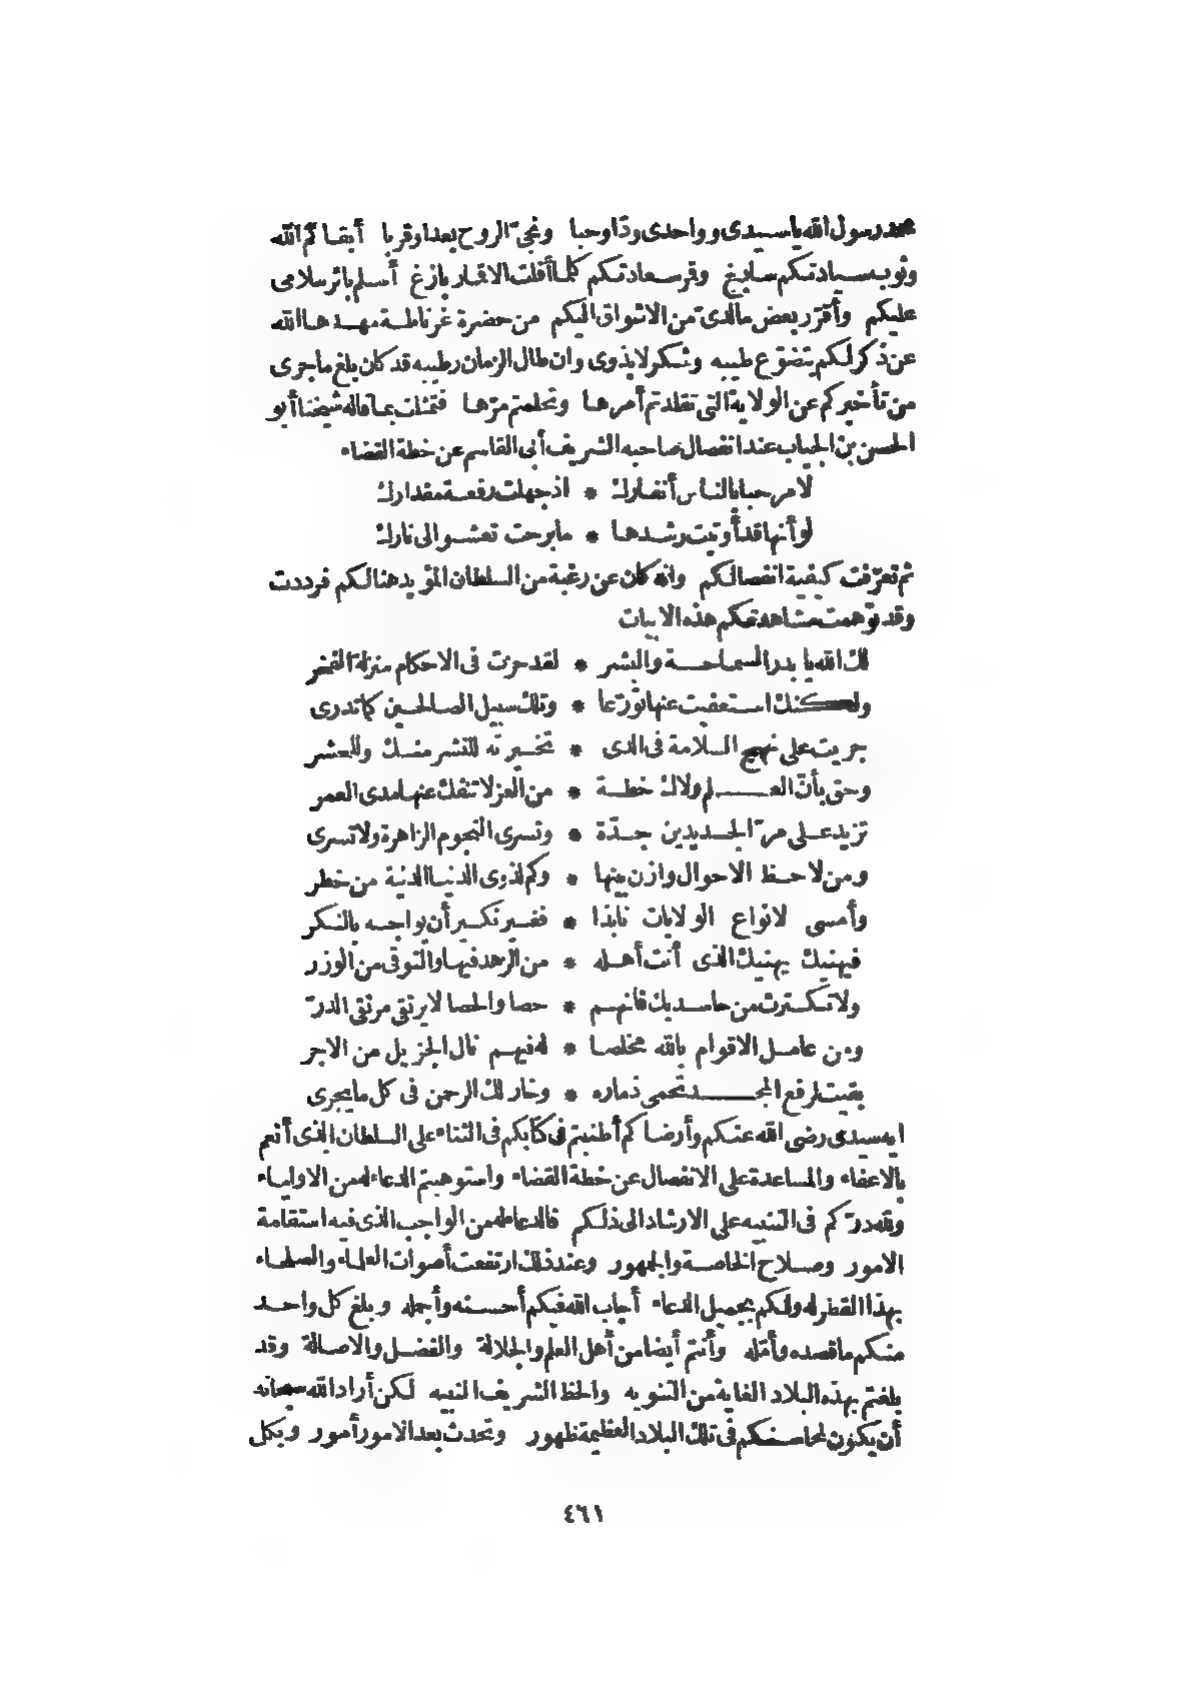 محمد رسول الله يا سيدى وواحدى ودّا وحبا ونجىّ الروح بعدا وقربا أبقاكم الله
وثوب سيادتكم سابغ وقمر سعادتكم كلما أفلت الاقمار بازغ أسلم بأثر سلامى
عليكم وأقرّر بعض مالدىّ من الاشواق اليكم من حضرة غرناطة مهدها الله
عن ذكر لكم يتضوّع طيبه وشكر لا يذوى وان طال الزمان رطيبه قد كان بلغ ما جرى
من تأخيركم عن الولاية التى تقلدتم أمرها وتحملتم مرّها فتمثلت بما قاله شيخنا أبو
الحسن بن الجياب عند انفصال صاحبه الشريف أبى القاسم عن خطة القضاء
لا مرحبا بالناس أنصارك * اذ جهلت رفعة مقدارك
لو أنها قد أوتيت رشدها * ما برحت تعشو الى نارك
ثم تعرّفت كيفية انفصالكم وانه كان عن رغبة من السلطان المؤيد هنالكم فرددت
وقد توّهمت مشاهدتكم هذه الابيات
لك الله يا بدر السماحة والبشر * لقد حزت فى الاحكام منزلة الفخر
ولكنك استعفيت عنها تورّعا * وتلك سبيل الصالحين كما تدرى
جريت على نهج السلامة فى الذى * تخيرته للنشر منك وللحشر
وحق بأنّ العلم ولاك خطة * من العز لا تنفك عنها مدى العمر
تزيد على مرّ الجديدين جدّة * وتسرى النجوم الزاهرة ولا تسرى
ومن لاحظ الاحوال وازن بينها * وكم لذوى الدنيا الدنية من خطر
وأمسى لانواع الولايات نابذا * فغير نكير أن يواجه بالنكر
فيهنيك يهنيك الذى أنت أهله * من الزهد فيها والتوقى من الوزر
ولا تكترث من حاسديك فانهم * حصا والحصا لا يرتقى مرتقى الدرّ
ومن عامل الاقوام بالله مخلصا * له فيهم نال الجزيل من الاجر
بقيت لرفع المجد تحمى ذماره * وخار لك الرحمن فى كل ما يجرى
ايه سيدى رضى الله عنكم وأرضاكم أطنبتم فى كتابكم فى الثناء على السلطان الذى أنعم
بالاعفاء والمساعدة على الانفصال عن خطة القضاء واستوهبتم الدعاء له من الاولياء
ولله درّكم فى التنبيه على الارشاد الى ذلكم فالدعاء له من الواجب الذى فيه استقامة
الامور وصلاح الخاصة والجمهور وعند ذلك ارتفعت أصوات العلماء والصلحاء
بهذا القطر له ولكم بجميل الدعاء أجاب الله فيكم أحسنه وأجمله وبلغ كل واحد
منكم ما قصده وأمّله وأنتم أيضا من أهل العلم والجلالة والفضل والاصالة وقد
بلغتم بهذه البلاد الغاية من التنويه والحظ الشريف النبيه لكن أراد الله سبحانه
أن يكون لمحاسنكم فى تلك البلاد العظيمة ظهور وتحدث بعد الامور أمور وبكل
٤٦١